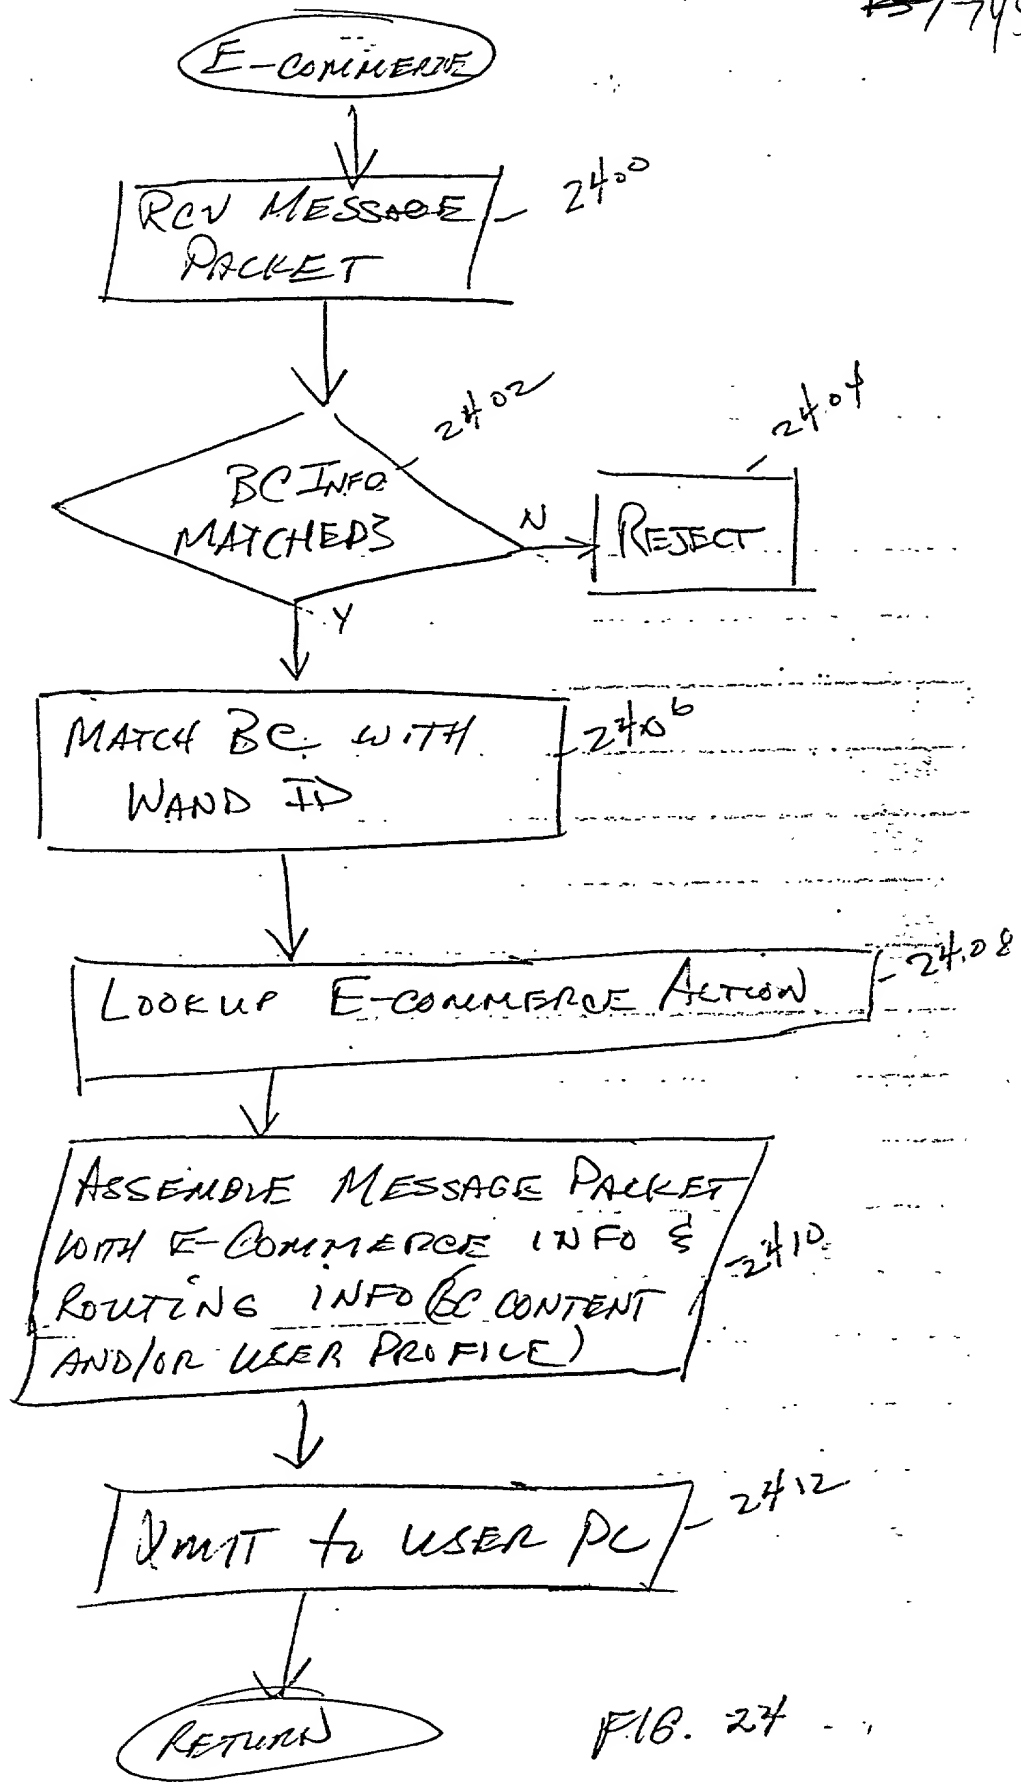 E-COMMERCE
2400
RCV MESSAGE
PACKET
2402
2404
BC INFO
MATCHED?
N
REJECT
Y
MATCH BC WITH
WAND ID
2406
LOOKUP E-COMMERCE ACTION
2408
ASSEMBLE MESSAGE PACKET
WITH E-COMMERCE INFO &
ROUTING INFO (BC CONTENT
AND/OR USER PROFILE)
2410
XMIT to USER PC
2412
RETURN
FIG. 24